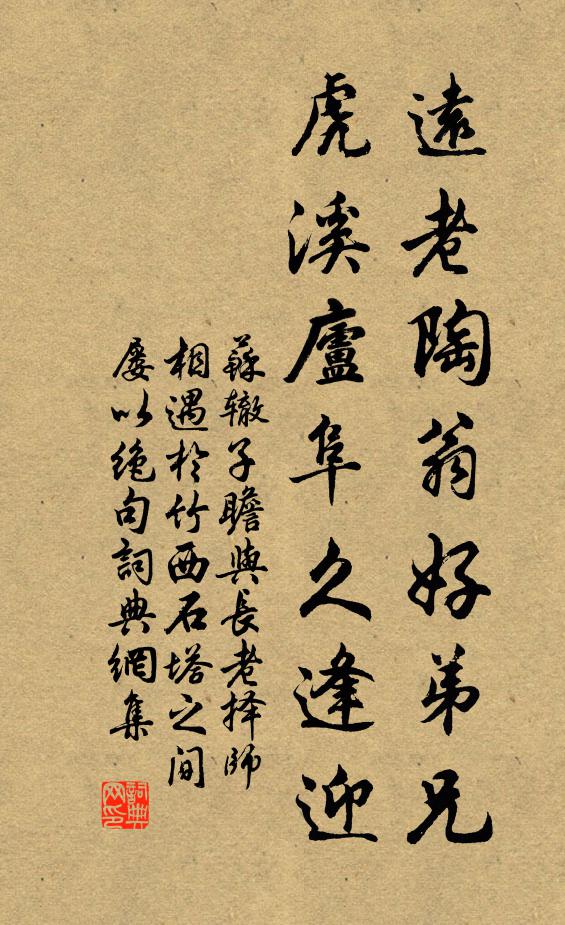 遠老陶翁好弟兄
虎溪廬阜久逢迎
蘇辙子瞻與長老择師
相遇於竹西石塔之间
屡以绝句詞典網集
詞典
网印